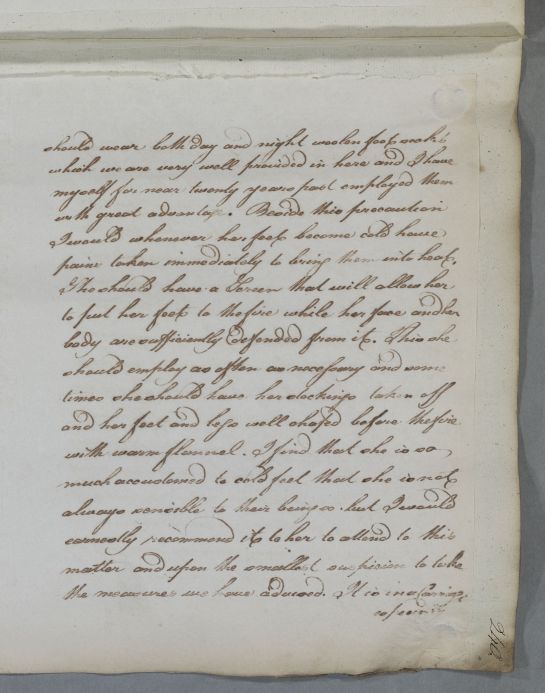 should wear both day and night woolen foot socks
which we are very well provided in here and I have
myself for near twenty years past employed them
with great advantage. Beside this precaution
I would whenever her feet become cold have
pains taken immediately to bring them into heat,
She should have a Skreen that will allow her
to put her feet to the fire while her face and her
body are sufficiently defended from it. This she
should employ as often as necessary and some
times she should have her stockings taken off
and her feet and legs well chafed before the fire
with warm flannel. I find that she is so
much accustomed to cold feet that she is not
always sensible to their being so. but I would
earnestly recommend it to her to attend to this
matter and upon the smallest suspicion to take
the measures we have advised. It is in a Carriage